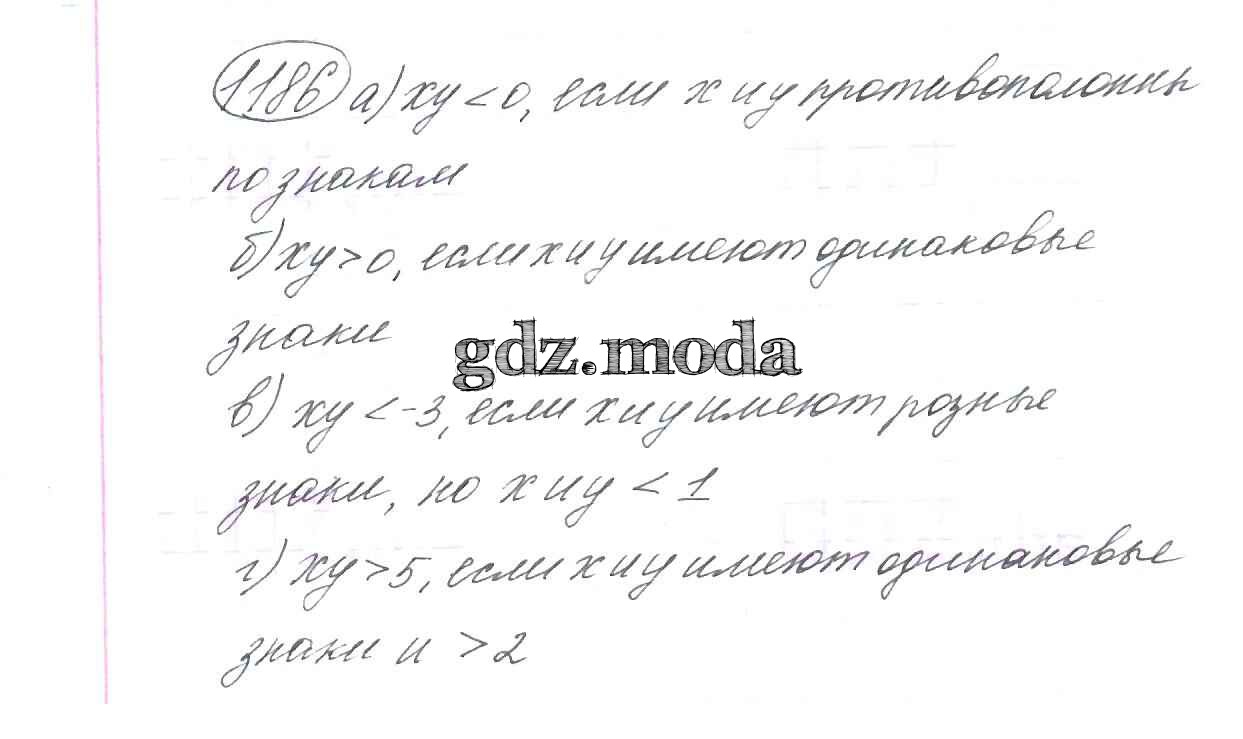 1186 а) xy < 0, если x и y противополопны
по знакам
б) xy > 0, если x и y имеют одинаковые
знаки
gdz.moda
в) xy < -3, если x и y имеют розные
знаки, но x и y < 1
г) xy > 5, если x и y имеют одинаковые
знаки и > 2